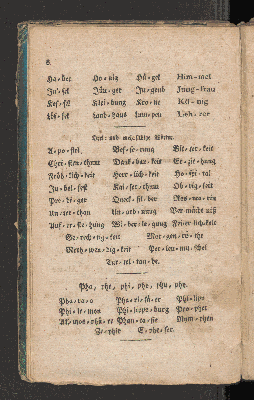 6.
Ha⸗ber Ho⸗nig Hü⸗gel Him⸗mel
In⸗sel Jün⸗ger Ju⸗gend Jung⸗frau
Kes⸗sel Klei⸗dung Kro⸗ne Kö⸗nig
Löf⸗fel Land⸗haus Lum⸗pen Leh⸗rer
Drei⸗ und mehrsilbige Wörter.
A⸗po⸗stel, Bes⸗se⸗rung Bit⸗ter⸗keit
Chri⸗sten⸗thum Dank⸗bar⸗keit Er⸗zie⸗hung
Fröh⸗lich⸗keit Herr⸗lich⸗keit Ho⸗spi⸗tal
Ju⸗bel⸗fest Kai⸗ser⸗thum Ob⸗rig⸗keit
Pre⸗di⸗ger Queck⸗sil⸗ber
Un⸗ter⸗than Un⸗ord⸗nung
Auf⸗er⸗ste⸗hung Fei⸗er⸗lich⸗keit
Ge⸗rech⸗tig⸗keit Mor⸗gen⸗rö⸗the
Noth⸗wen⸗dig⸗keit Per⸗len⸗mu⸗schel
Tur⸗tel⸗tau⸗be.
Pha, phe, phi, pho, phu, phy.
Pha⸗ra⸗o Pha⸗ri⸗sä⸗er Phi⸗lipp
Phi⸗le⸗mon Phi⸗lipps⸗burg Pro⸗phet
At⸗mos⸗phä⸗re Phan⸗ta⸗sie Nym⸗phen
E⸗phe⸗ser.